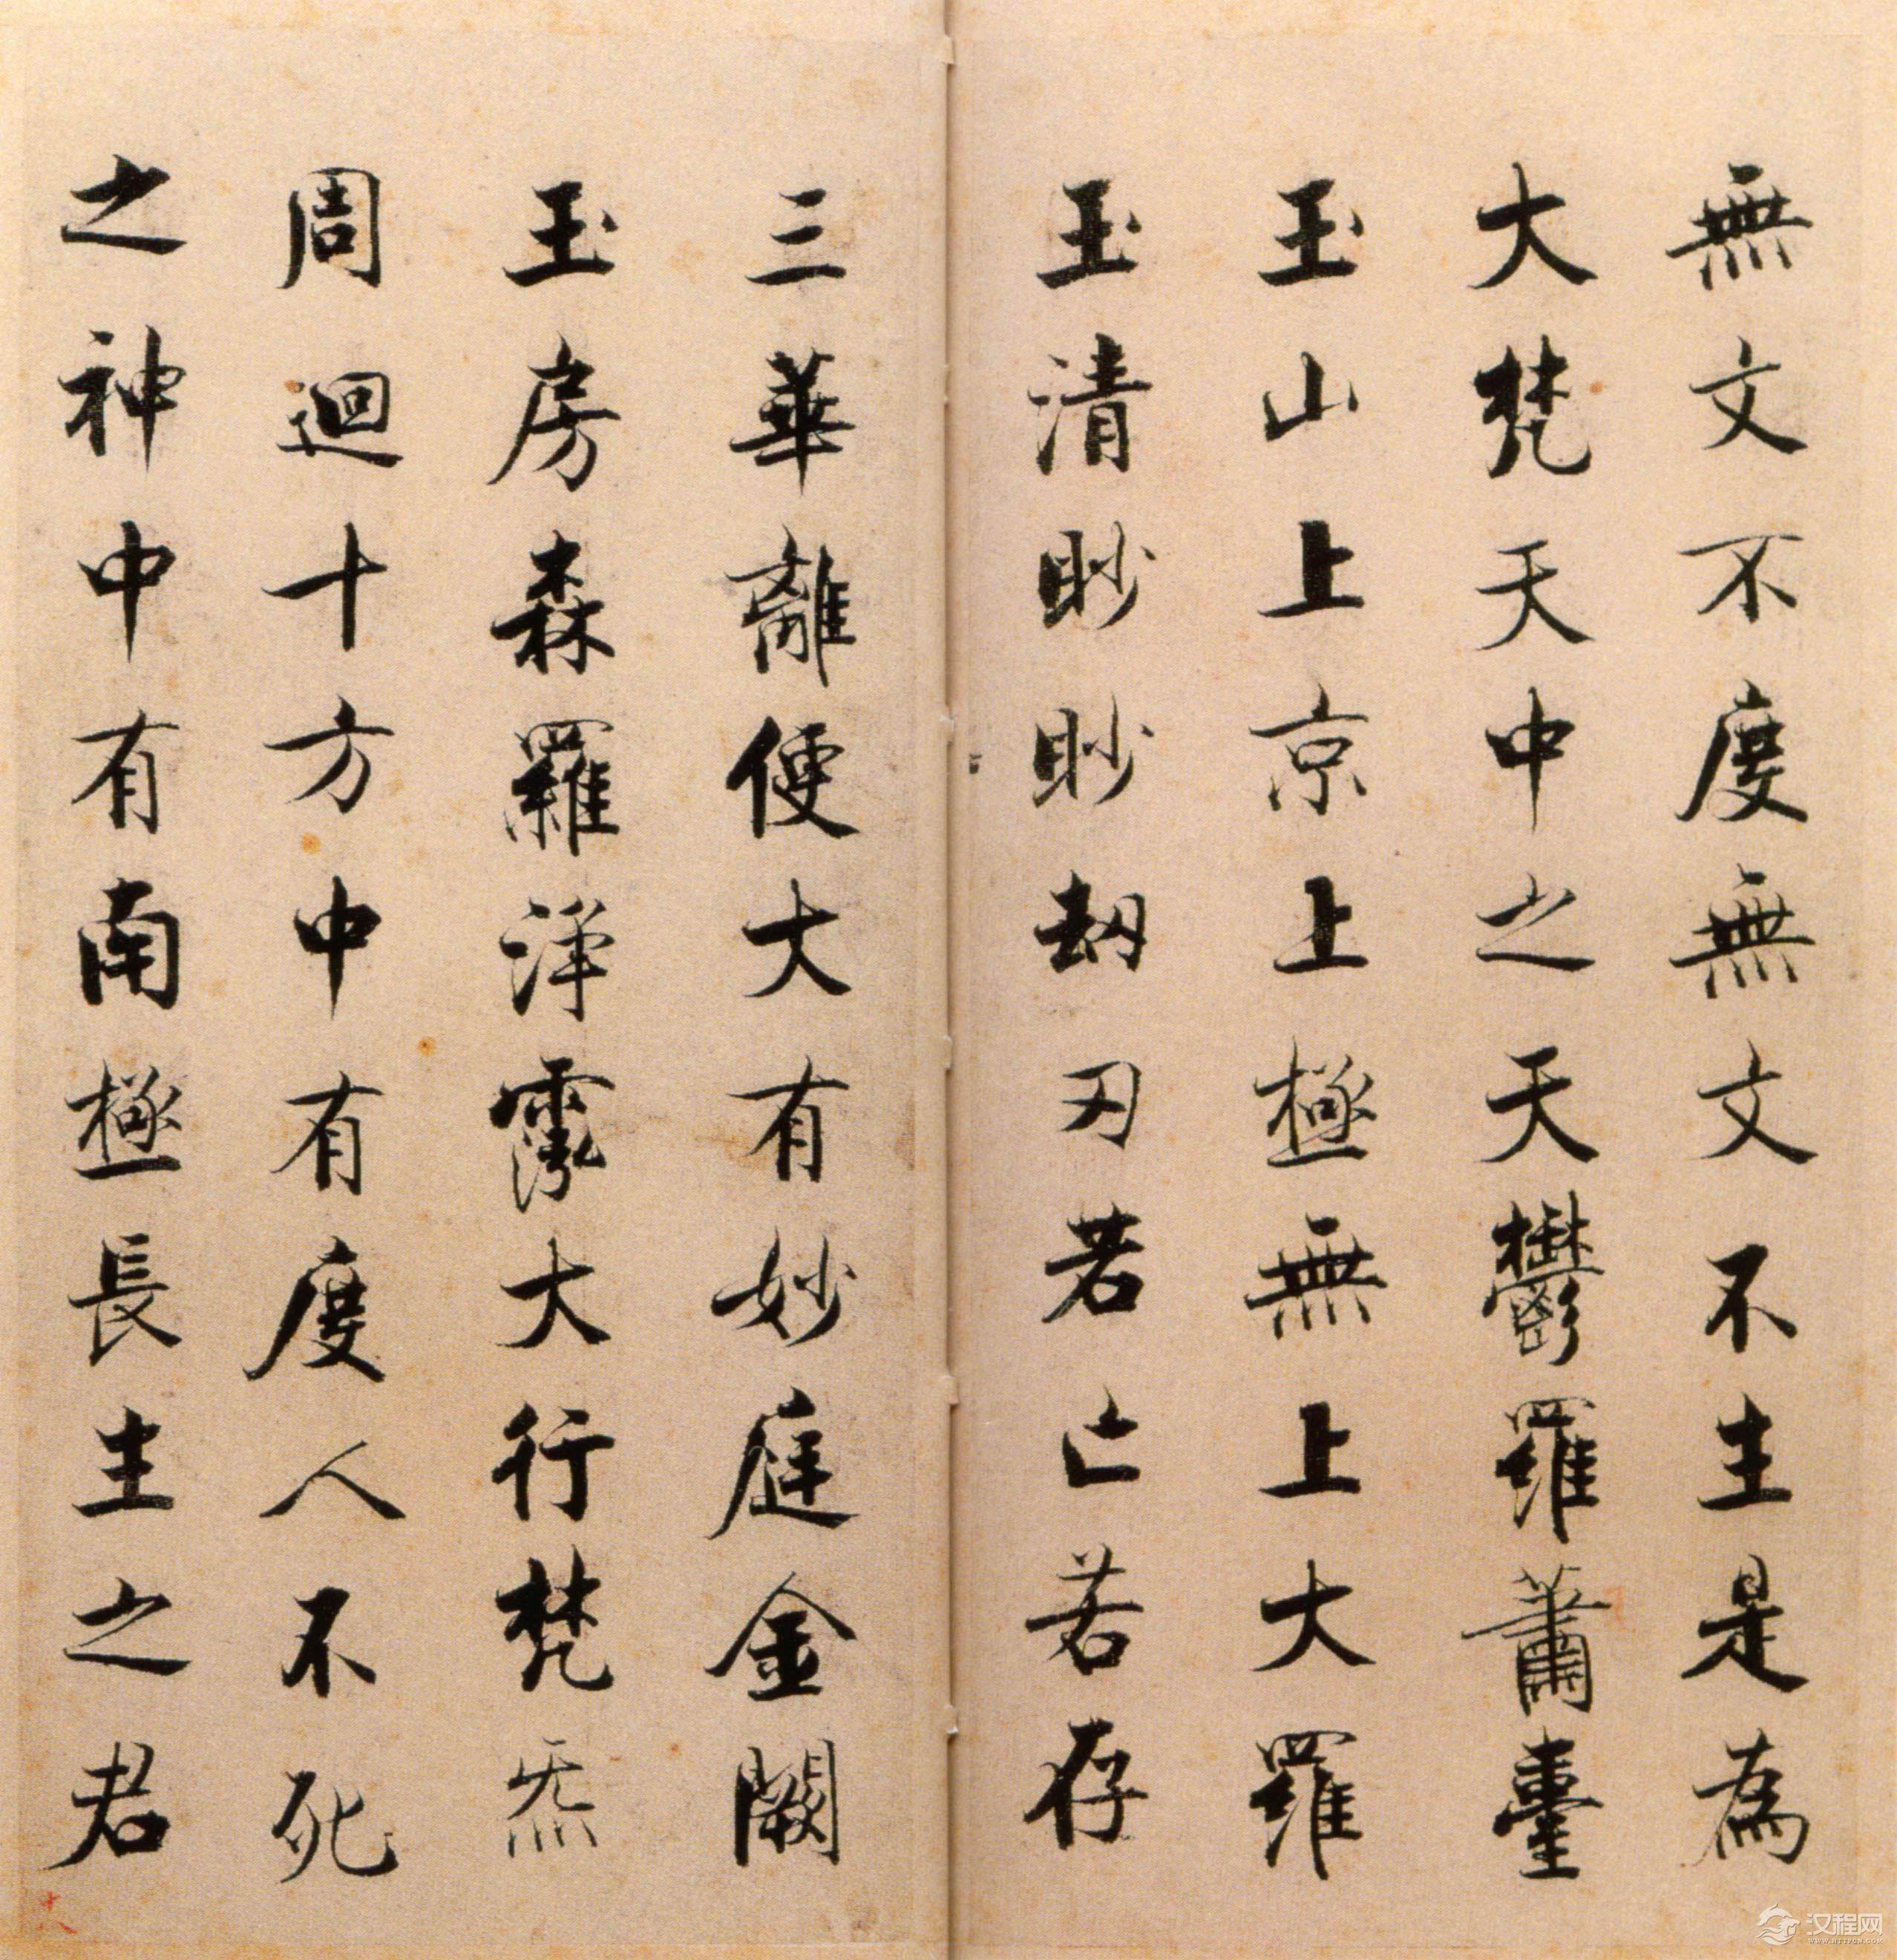 無文不度無文不生是為
大梵天中之天鬱羅蕭臺
玉山上京上極無上大羅
玉清眇眇劫刃若亡若存
三華離便大有妙庭金闕
玉房森羅淨霐大行梵炁
周迴十方中有度人不死
之神中有南極長生之君
十八
汉程网
www.httpcn.com